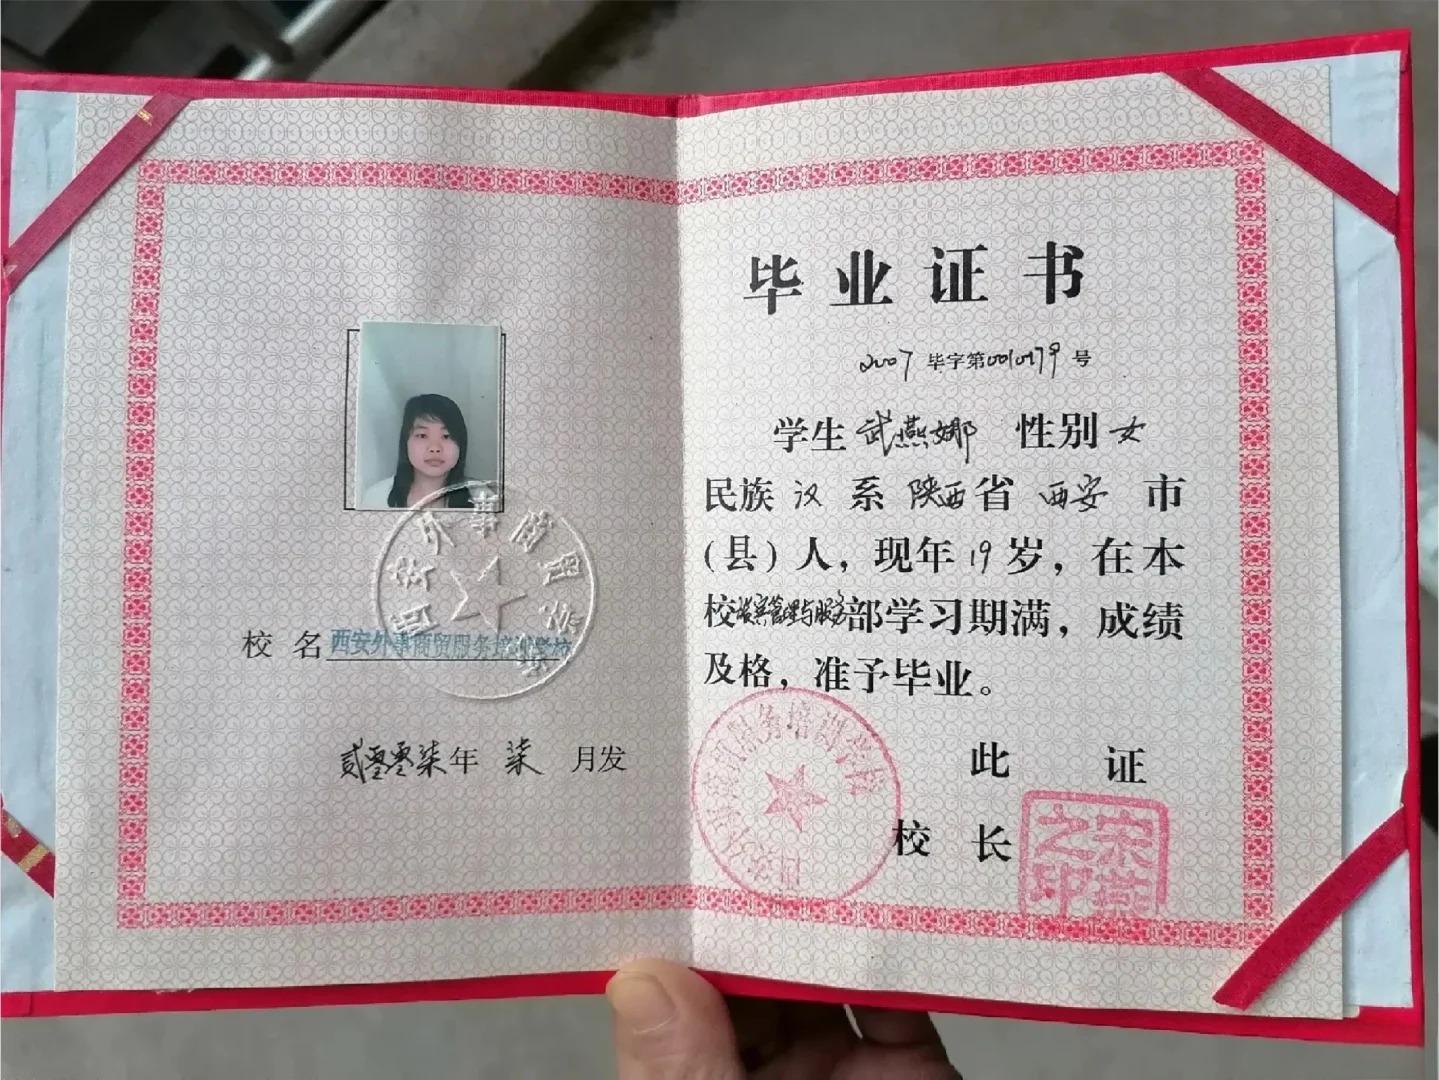 西安外事商贸服务
校 名 西安外事商贸服务培训学校
贰零零柒年 柒 月发
毕业证书
2007 毕字第0010179号
学生 武燕娜 性别 女
民族 汉 系 陕西 省 西安 市
(县)人，现年 19 岁，在本
校宾馆管理与服务部学习期满，成绩
及格，准予毕业。
此 证
校 长
服务培训学校
宋燕之印